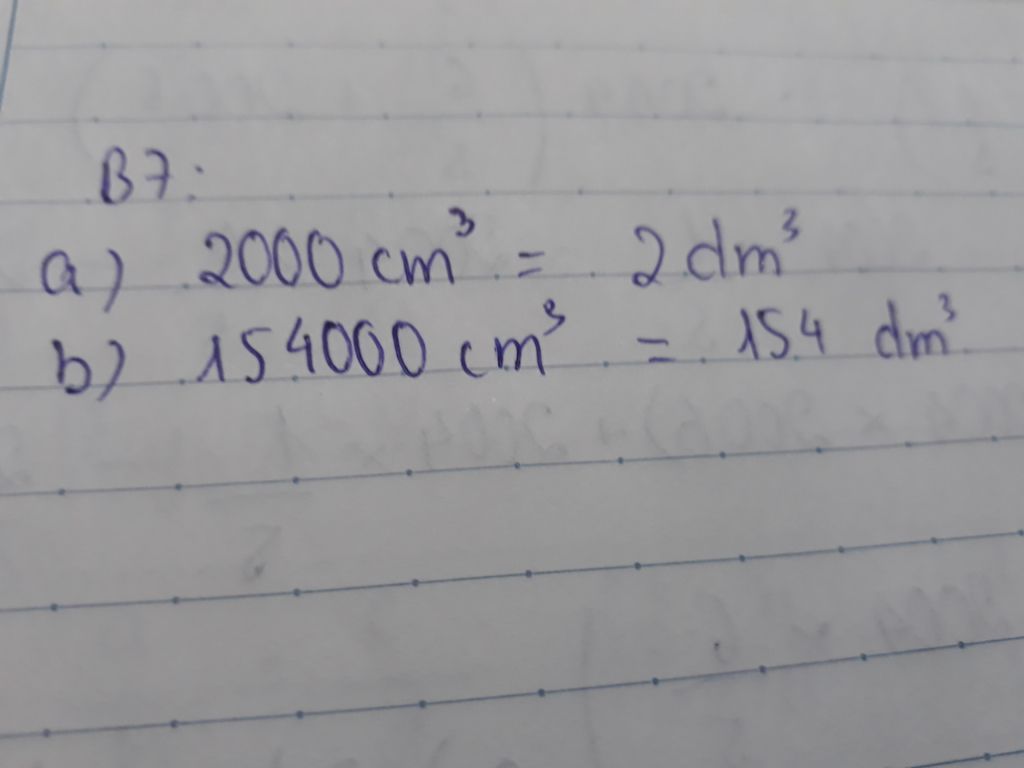 B7:
a) 2000 cm³ = 2 dm³
b) 154000 cm³ = 154 dm³